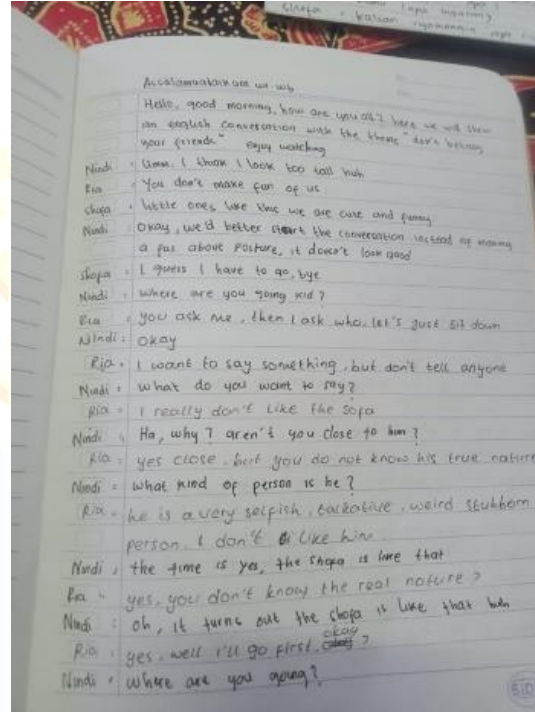 Assalamualaikum wr. wb
Hello, good morning, how are you all? here we will show
an english conversation with the theme "don't betray
your friends" enjoy watching
Nindi : Umm. I think I look too tall huh
Ria : You don't make fun of us
Shopa : little ones like this we are cute and funny
Nindi : Okay, we'd better start the conversation instead of making
a fus about Posture, it doesn't look good
Shopa : I guess I have to go, bye
Nindi : Where are you going kid?
Ria : you ask me, then I ask who. let's just sit down
Nindi : Okay
Ria : I want to say something, but don't tell anyone
Nindi : What do you want to say?
Ria : I really don't like the sofa
Nindi : Ha, why? aren't you close to him?
Ria : yes close, but you do not know his true nature
Nindi : what kind of person is he?
Ria : he is a very selfish, talkative, weird stubborn
person. I don't like him
Nindi : the time is yes, the shopa is like that
Ria : yes, you don't know the real nature?
Nindi : oh, it turns out the shopa is like that huh
Ria : yes, well I'll go first, okay?
Nindi : where are you going?
SiD